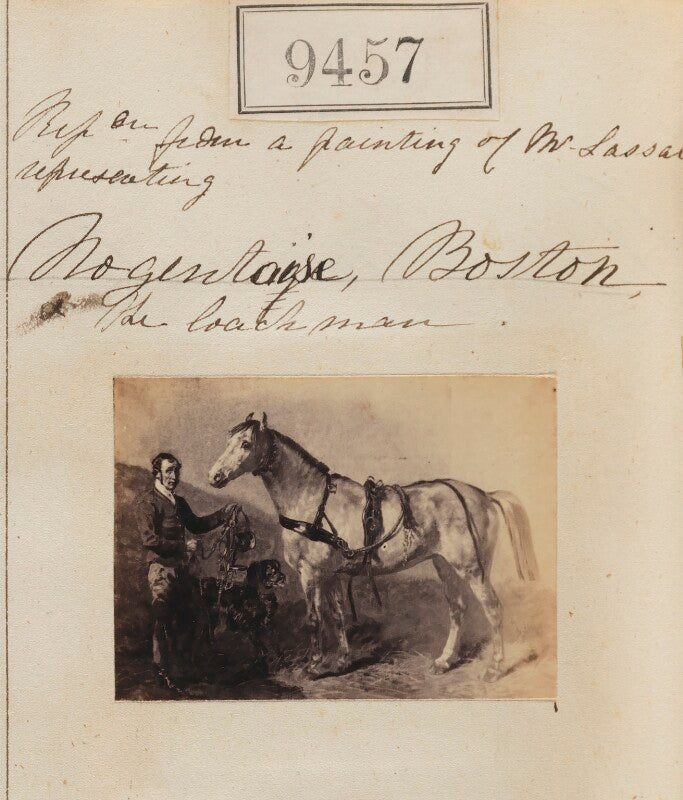 9457
Rep on from a painting of Mr Lassal
representing
Nogentaise, Boston,
The coachman.